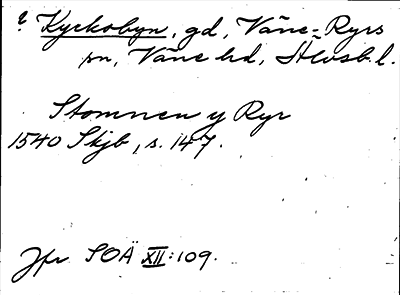 ? Kyrkobyn, gd, Väne-Ryrs
sn, Väne hd, Älvsb. l.
Stomnen y Ryr
1540 Skjb, s. 147.
Jfr SOÄ XII: 109.